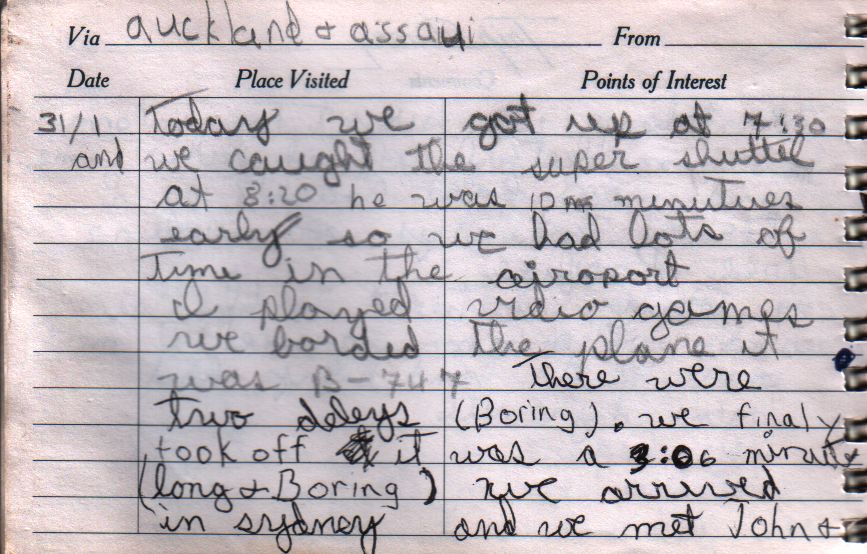 Via auckland & assaui From
Date Place Visited Points of Interest
31/1 Today we got up at 7:30
and we caught the super shuttel
at 8:20 he was 10 minutues
early so we had lots of
time in the airoport
I played vidio games
we borded the plane it
was B-747 There were
two deleys (Boring). we finaly
took off it was a 3:06 minute
(long & Boring) we arrived
in sydney and we met John &